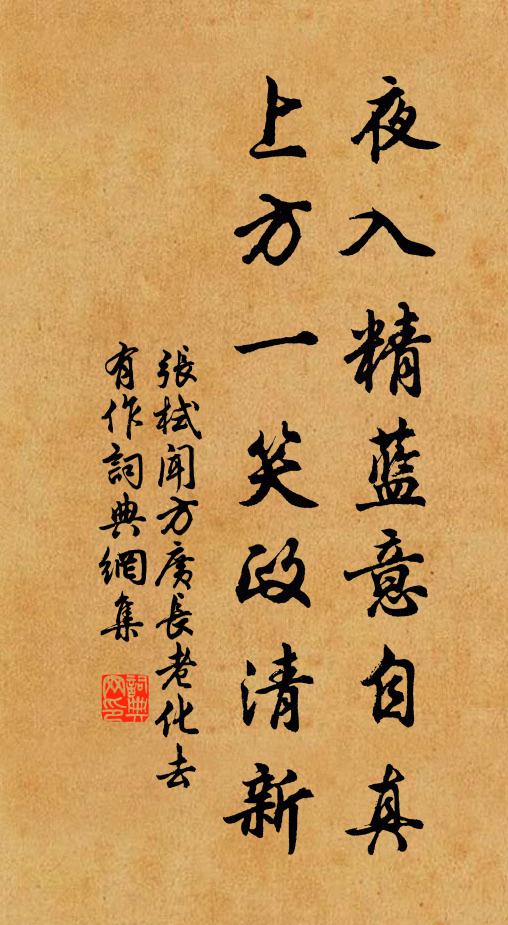 夜入精藍意自真
上方一笑政清新
張栻聞方廣長老化去
有作詞典網集
詞典
网印